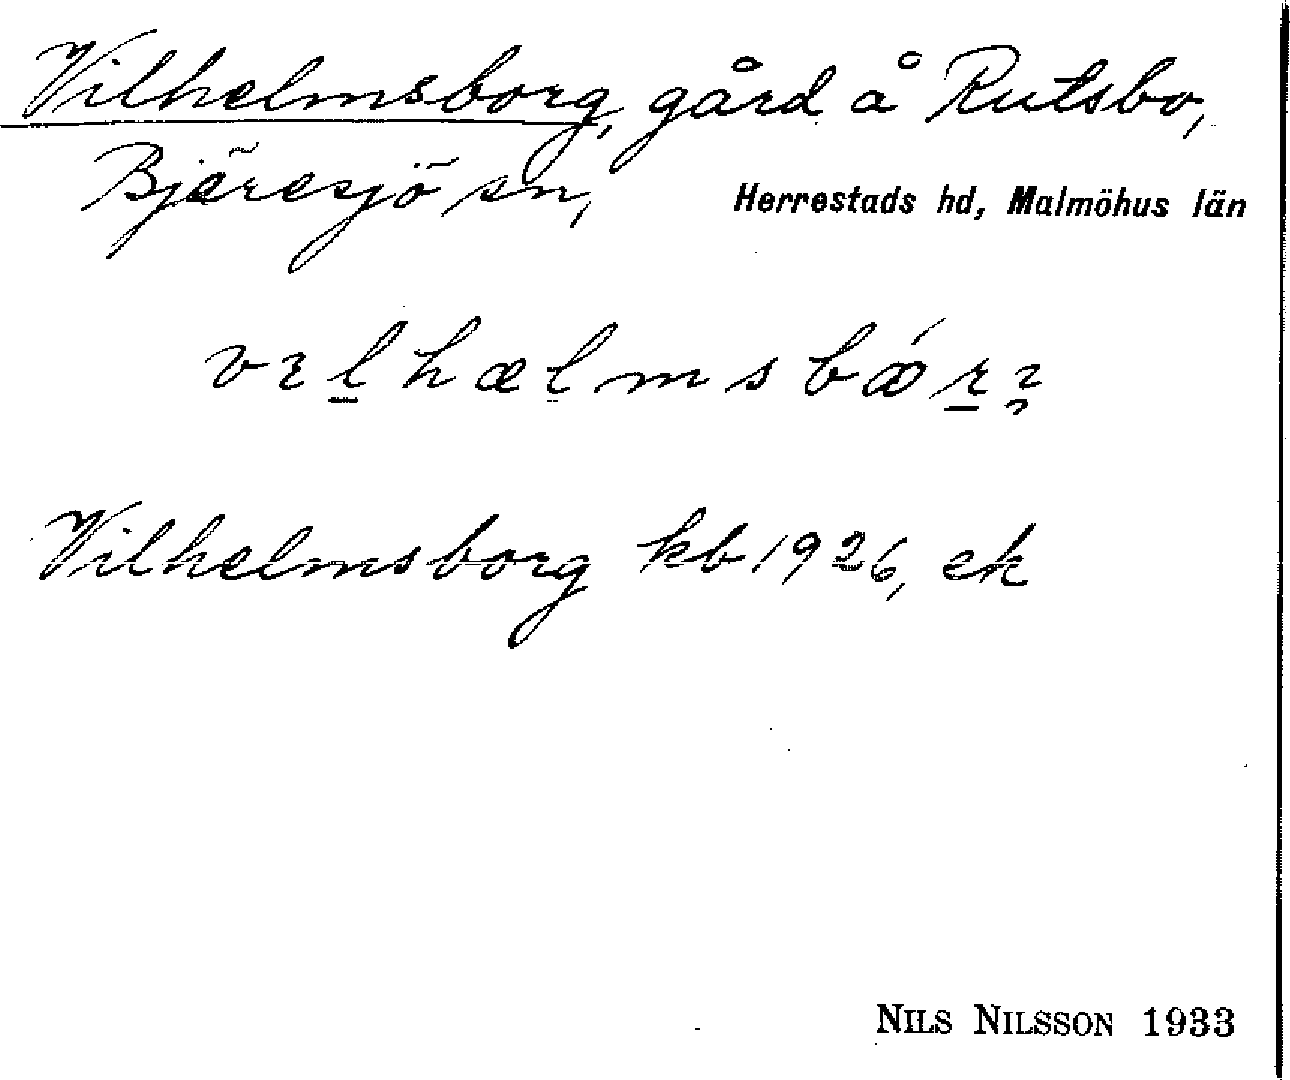 Vilhelmsborg, gård å Rutsbo,
Bjäresjö sn, Herrestads hd, Malmöhus län
Vilhelmsborg kb 1926, ek
NILS NILSSON 1933